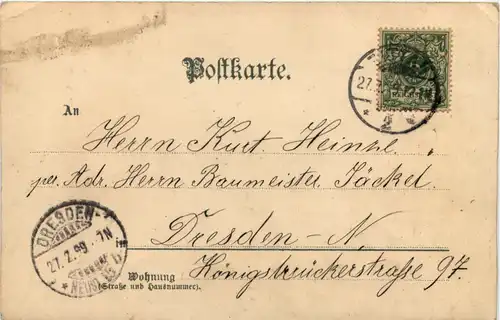 Postkarte.
27.
2
An
Herrn Kurt Heinze
per. Adr. Herrn Baumeister Jäckel.
DRESDEN
27.2.99. 7N
NEUST.
in Dresden-N.
Wohnung
(Straße und Hausnummer).
Königsbrückerstraße 97.